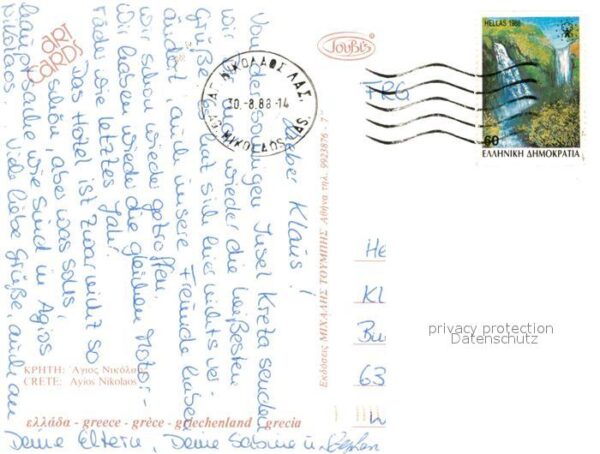 ART
CARDS
Τουβής
ΑΓ. ΝΙΚΟΛΑΟΣ ΛΑΣ.
30.-8.88-14
AG. NIKOLAOS LAS.
HELLAS 1988
60
ΕΛΛΗΝΙΚΗ ΔΗΜΟΚΡΑΤΙΑ
FRG
Lieber Klaus!
Von der sonnigen Insel Kreta senden
wir Dir wieder die heißesten
Grüße. Es hat sich hier nichts ver-
ändert, auch unsere Freunde haben
wir schon wieder getroffen.
Wir haben wieder die gleichen Motor-
räder wie letztes Jahr.
Das Hotel ist zwar nicht so
schön, aber was solls,
Hauptsache wir sind in Agios
Nikolaos. Viele liebe Grüße, auch an
Deine Eltern, Deine Sabine u. Stephan
He
Kl
Bu
63
W
privacy protection
Datenschutz
Εκδόσεις ΜΙΧΑΛΗΣ ΤΟΥΜΠΗΣ Αθήνα τηλ. 9923876 - 7
ΚΡΗΤΗ: Άγιος Νικόλαος
CRETE: Agios Nikolaos
ελλάδα - greece - grèce - griechenland - grecia